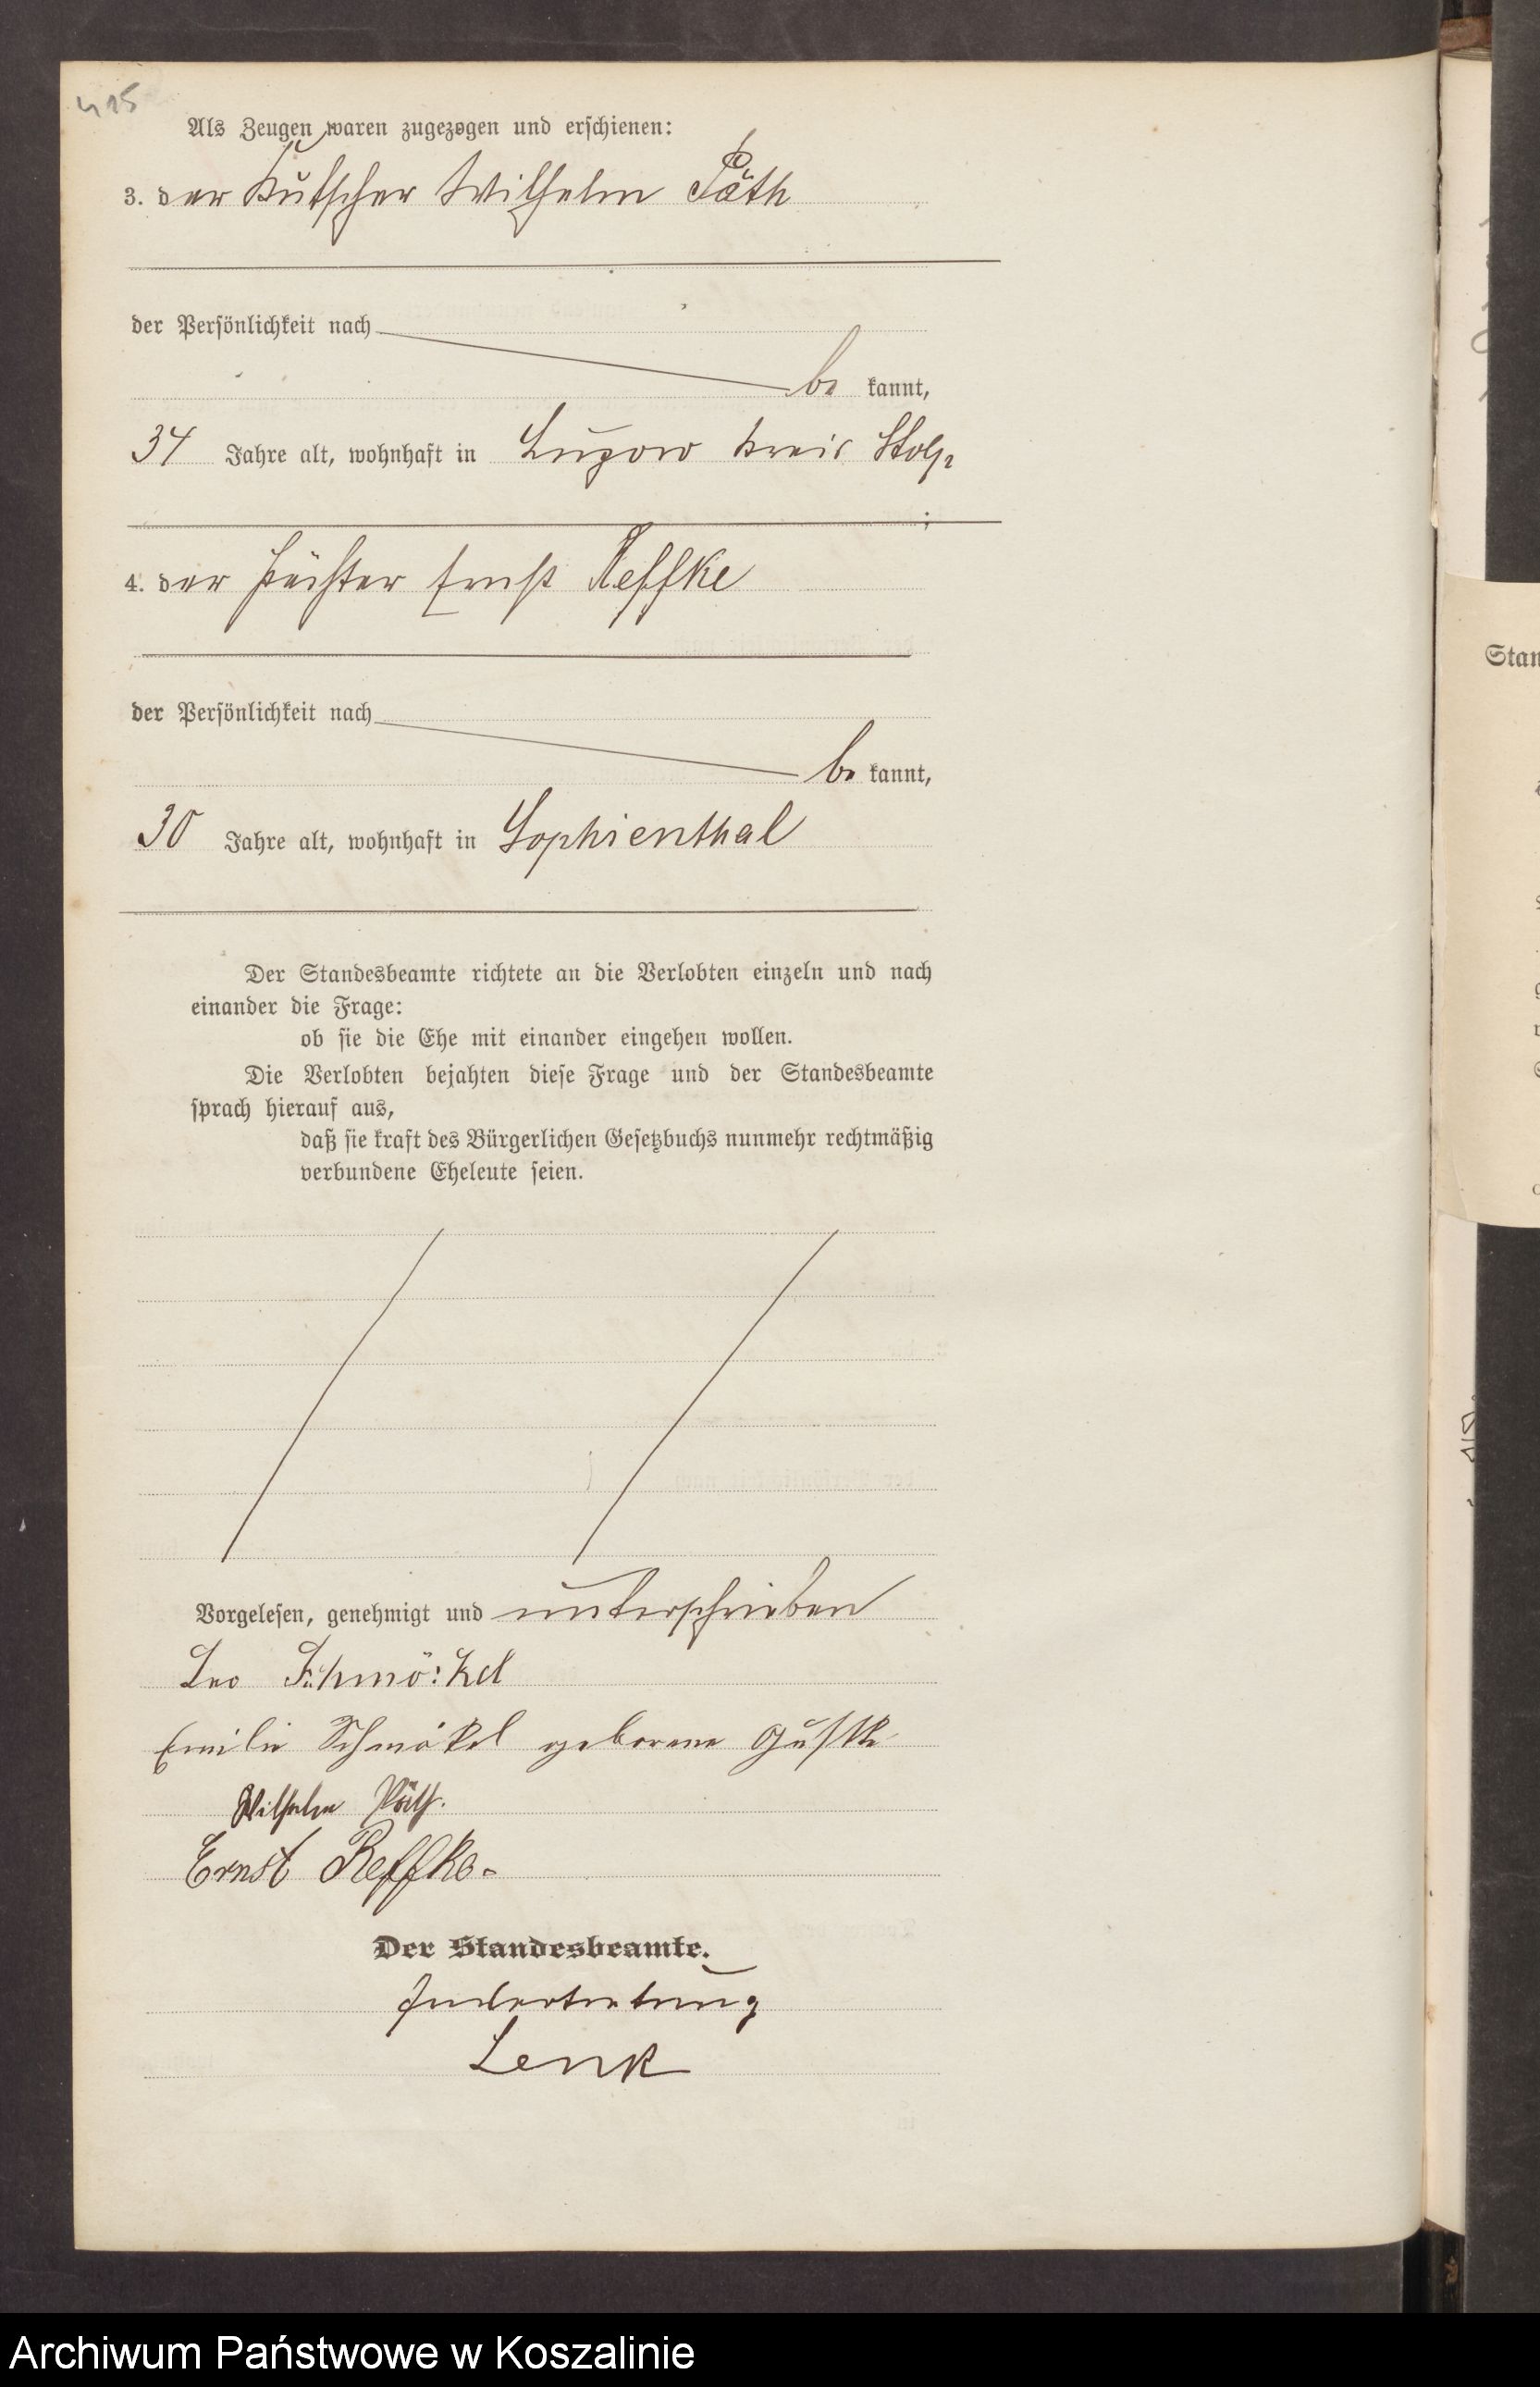 415
Als Zeugen waren zugezogen und erschienen:
3. der Kutscher Wilhelm Päth
der Persönlichkeit nach
be kannt,
34 Jahre alt, wohnhaft in Lupow Kreis Stolp
;
4. der Pächter Ernst Reffke
der Persönlichkeit nach
be kannt,
30 Jahre alt, wohnhaft in Sophienthal
Der Standesbeamte richtete an die Verlobten einzeln und nach
einander die Frage:
ob sie die Ehe mit einander eingehen wollen.
Die Verlobten bejahten diese Frage und der Standesbeamte
sprach hierauf aus,
daß sie kraft des Bürgerlichen Gesetzbuchs nunmehr rechtmäßig
verbundene Eheleute seien.
Vorgelesen, genehmigt und unterschrieben
Leo Schmöckel
Emilie Schmökel geborene Guske
Wilhelm Päth.
Ernst Reffke.
Der Standesbeamte.
In Vertretung
Lenk
Stan
Archiwum Państwowe w Koszalinie